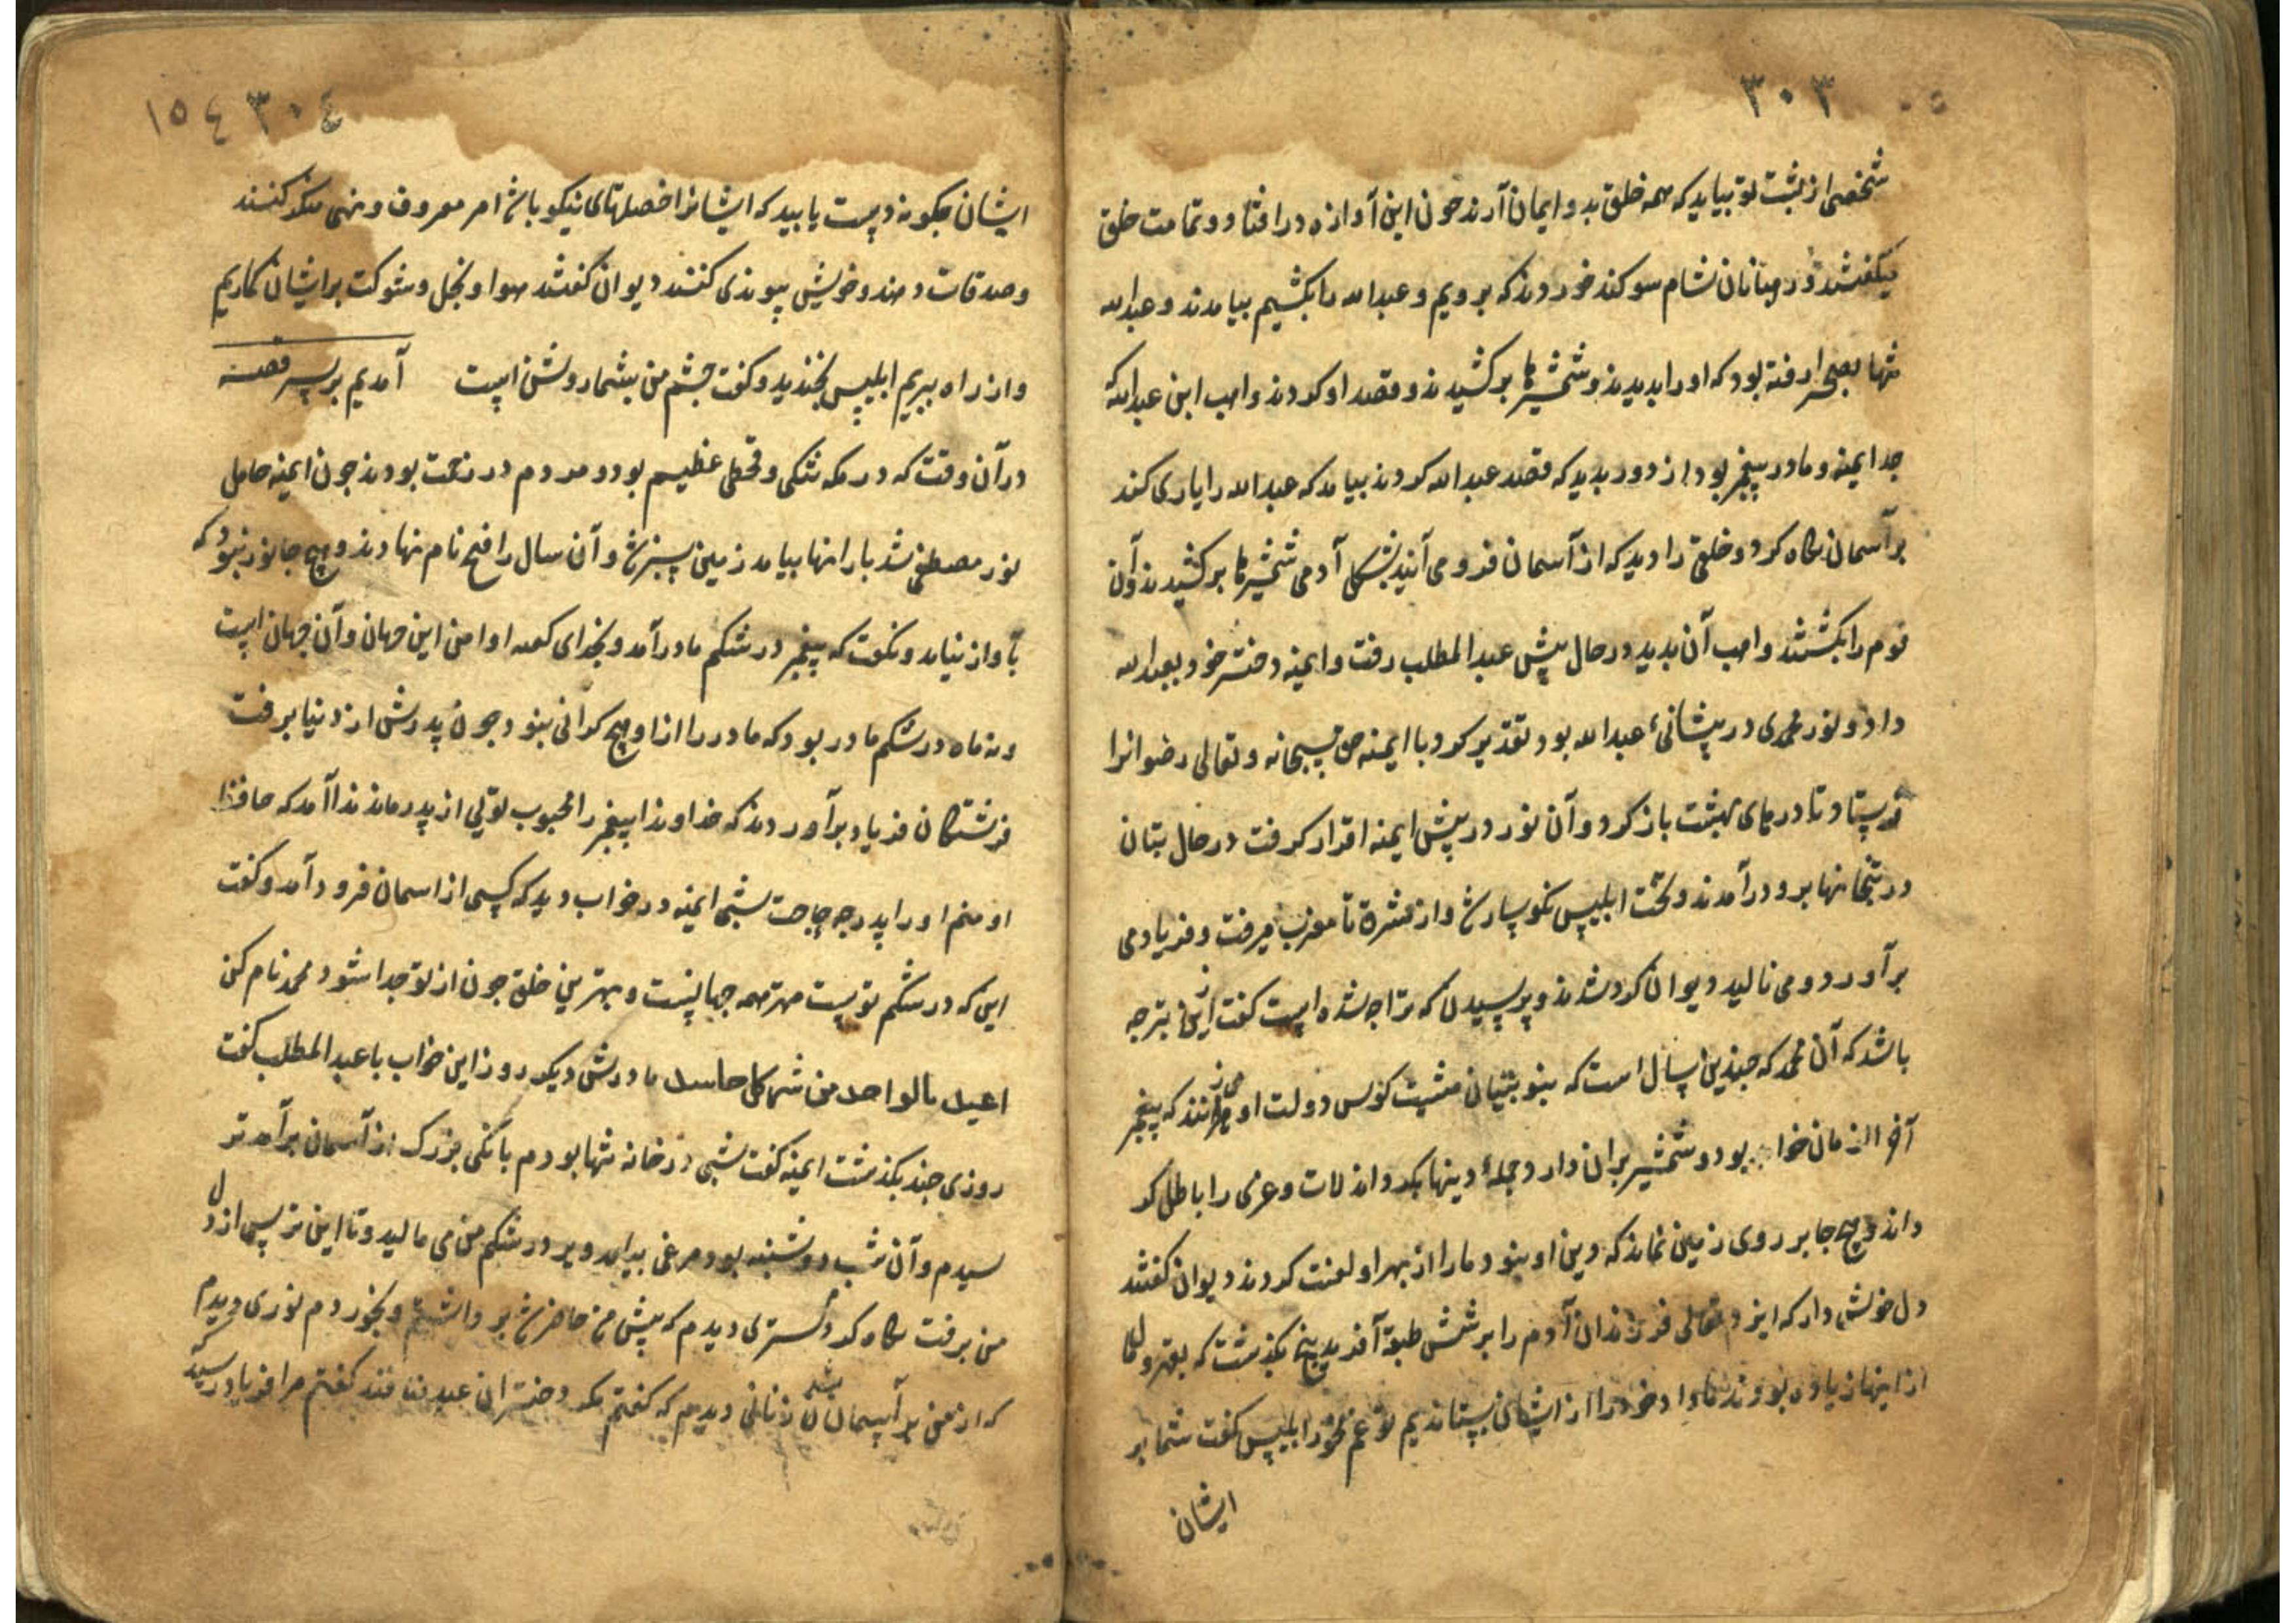 ٣٠٣
شخصی از پشت تو بیاید که همه خلق بدو ایمان آرند چون این آوازه در افتاد و تمامت خلق
میکفتند و رهبانان شام سوکند خوردند که برویم و عبدالله را بکشیم بیامدند و عبدالله
تنها بصحرا رفته بود که او را بدیدند و شمشیرها برکشیدند و قصد او کردند واهب ابن عبدالله که
جد ایمنه و مادر پیغمبر بود از دور بدید که قصد عبدالله کردند بیامد که عبدالله را یاری کند
بر آسمان نکاه کرد و خلقی را دید که از آسمان فرو می آیند بشکل آدمی شمشیرها برکشیدند و آن
قوم را بکشتند واهب آن بدید در حال پیش عبدالمطلب رفت و ایمنه دختر خود بعبدالله
داد و نور محمدی در پیشانیٔ عبدالله بود تقدیر کرد با ایمنه حق سبحانه و تعالی رضوانرا
فرستاد تا درهای بهشت باز کرد و آن نور در پیش ایمنه اقرار کرفت در حال بتان
در بتخانها برو درآمدند و تخت ابلیس نکوسار شد و از مشرق تا مغرب میرفت و فریاد می
برآورد و می نالید دیوان کرد شدند و پرسیدند که ترا چه شده است کفت ازین بتر چه
باشد که آن محمد که چندین سال است که بنوبتیان مشیت کوس دولت او می زنند که پیغمبر
آخر الزمان خوا بود و شمشیر بران دارد و جملهٔ دینها بکرداند لات و عزی را باطل کر
داند و هیچ جا بر روی زمین نماند که دین او نبود ما را از بهر او لعنت کردند دیوان کفتند
دل خوش دار که ایزد تعالی فرزندان آدم را بر شش طبقه آفرید پنج بکذشت که بقهر و
از اینها زیاده بودند ما داد خود را از ایشان بستاندیم تو غم مخور ابلیس کفت شما بر
ایشان
٣٠٤ ١٥٤
ایشان چکونه دست یابید که ایشانرا خصلتهای نیکو باشد امر معروف و نهی منکر کنند
و صدقات دهند و خویشی پیوندی کنند دیوان کفتند هوا و بخل و شوکت بر ایشان کماریم
و از راه ببریم ابلیس بخندید و کفت چشم من بشما روشن است آمدیم بر سر قصه
در آن وقت که در مکه تنکی و قحطی عظیم بود و مردم در زحمت بودند چون ایمنه حامل
نور مصطفی شد بارانها بیامد زمین سبز شد و آن سال را فتح نام نهادند و هیچ جانور نبود که
بآواز نیامد و نکفت که پیغمبر در شکم مادر آمد و بخدای کعبه او امن این جهان و آن جهان است
و نه ماه در شکم مادر بود که مادر را از او هیچ کرانی نبود چون پدرش از دنیا برفت
فرشتکان فریاد برآوردند که خداوندا پیغمبر را محبوب تویی از پدر ماند ندا آمد که حافظ
او منم او را پدر چه حاجت شبی ایمنه در خواب دید که کسی از اسمان فرود آمد و کفت
این که در شکم توست مهتر همه جهانست و بهترین خلق چون از تو جدا شود محمد نام کن
اعیذ بالواحد من شر کل حاسد مادرش دیکر روز این خواب با عبدالمطلب کفت
روزی چند بکذشت ایمنه کفت شبی در خانه تنها بودم بانکی بزرک از آسمان برآمد تر
سیدم و آن شب دوشنبه بود مرغی بیامد و پر در شکم من می مالید و تا این ترس از دل
من برفت نکاه کردم شربتی دیدم که پیش من حاضر شد برداشتم و بخوردم نوری دیدم
که از من بر آسمان شد زنانی دیدم که کفتم مکر دختران عبد منافند کفتم مرا فریاد رسید